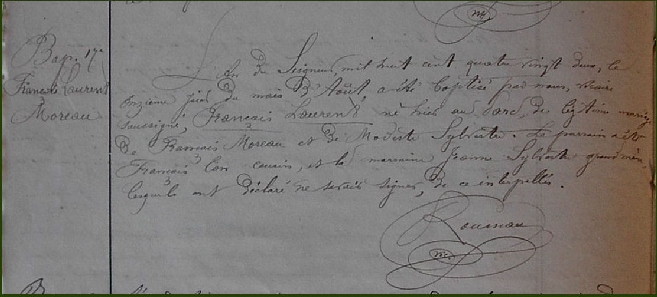 Bap. 17e
François Laurent
Moreau
L'An du Seigneur, mil huit cent quatre vingt deux, le
onzième jour du mois d'Août, a été baptisé par nous, vicaire
soussigné, François Laurent, né hier au de légitime mariage
de François Moreau et de Modeste Sylvestre. Le parrain a été
François son cousin, et la marraine Jeanne Sylvestre grand'mère
lesquels ont déclaré ne savoir signer, de ce interpellés.